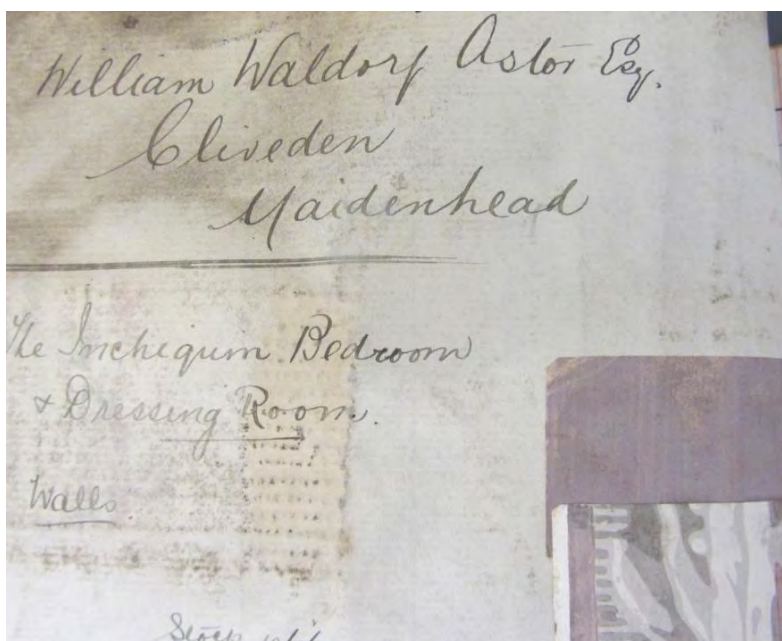 William Waldorf Astor Esq.
Cliveden
Maidenhead
The Inchiquin Bedroom
& Dressing Room.
Walls